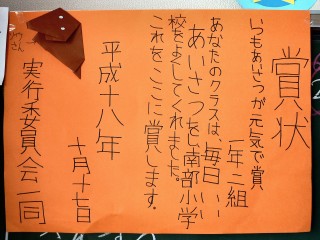 賞状
いつもあいさつが元気で賞
一年二組
あなたのクラスは、毎日いい
あいさつをし南部小学
校をよくしてくれました。
これをここに賞します。
平成十八年
十月十七日
実行委員会一同